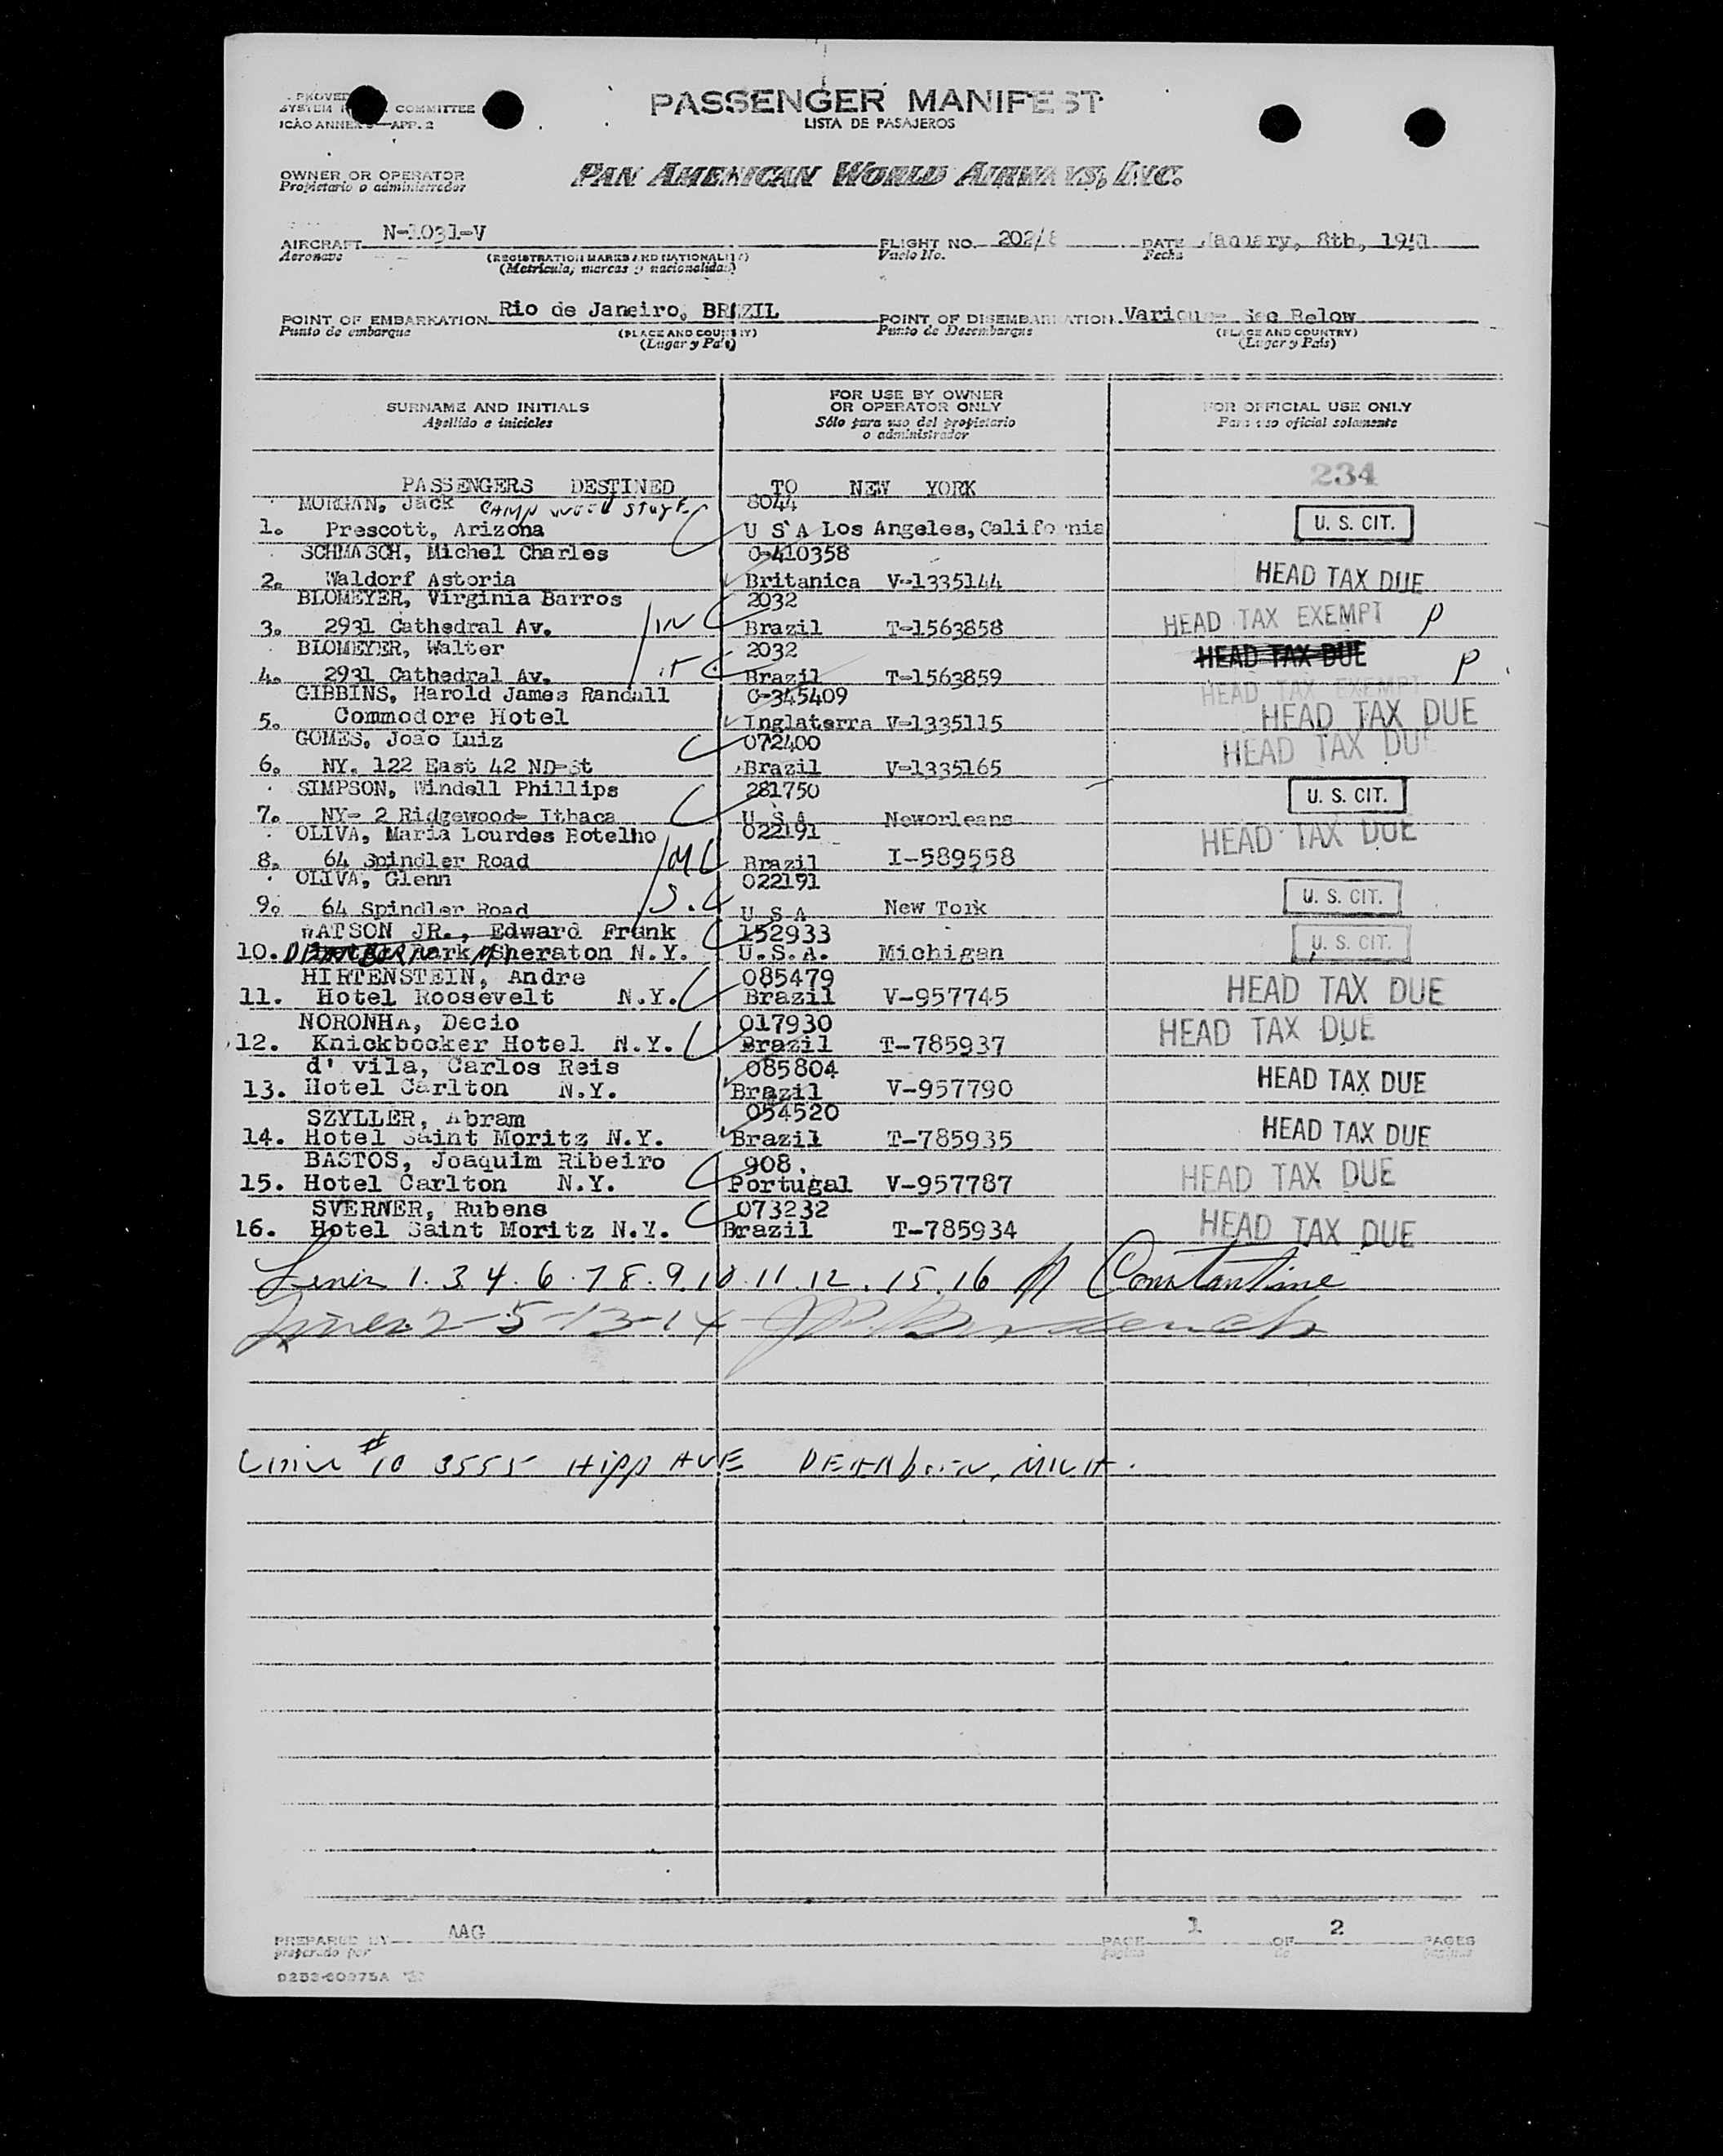 PASSENGER MANIFEST
LISTA DE PASAJEROS
SYSTEM COMMITTEE
ICAO ANNEX 9—APP. 2
OWNER OR OPERATOR
Propietario o administrador
PAN AMERICAN WORLD AIRWAYS, INC.
AIRCRAFT N-1031-V FLIGHT NO. 202/8 DATE January, 8th, 1951
Aeronave (REGISTRATION MARKS AND NATIONALITY) Vuelo No. Fecha
(Matrícula, marcas y nacionalidad)
POINT OF EMBARKATION Rio de Janeiro, BRAZIL POINT OF DISEMBARKATION Various - See Below
Punto de embarque (PLACE AND COUNTRY) Punto de Desembarque (PLACE AND COUNTRY)
(Lugar y País) (Lugar y País)
SURNAME AND INITIALS FOR USE BY OWNER OR OPERATOR ONLY FOR OFFICIAL USE ONLY
Apellido e iniciales Sólo para uso del propietario o administrador Para uso oficial solamente
234
PASSENGERS DESTINED TO NEW YORK
MORGAN, Jack CAMP WOOD 8044
1. Prescott, Arizona U S A Los Angeles, California U. S. CIT.
SCHMASCH, Michel Charles C-410358
2. Waldorf Astoria Britanica V-1335144 HEAD TAX DUE
BLOMEYER, Virginia Barros 2032
3. 2931 Cathedral Av. Brazil T-1563858 HEAD TAX EXEMPT P
BLOMEYER, Walter 2032 HEAD TAX DUE
4. 2931 Cathedral Av. Brazil T-1563859 P
GIBBINS, Harold James Randall C-345409 HEAD TAX EXEMPT
5. Commodore Hotel Inglaterra V-1335115 HEAD TAX DUE
GOMES, João Luiz 072400 HEAD TAX DUE
6. NY. 122 East 42 ND-St Brazil V-1335165
SIMPSON, Windell Phillips 281750 U. S. CIT.
7. NY- 2 Ridgewood- Ithaca U S A Neworleans
OLIVA, Maria Lourdes Botelho 022191 HEAD TAX DUE
8. 64 Spindler Road Brazil I-589558
OLIVA, Glenn 022191
9. 64 Spindler Road U S A New York U. S. CIT.
WATSON JR., Edward Frank 152933
10. Park Sheraton N.Y. U.S.A. Michigan U. S. CIT.
HIRTENSTEIN, Andre 085479
11. Hotel Roosevelt N.Y. Brazil V-957745 HEAD TAX DUE
NORONHA, Decio 017930
12. Knickbocker Hotel N.Y. Brazil T-785937 HEAD TAX DUE
d' vila, Carlos Reis 085804
13. Hotel Carlton N.Y. Brazil V-957790 HEAD TAX DUE
SZYLLER, Abram 054520
14. Hotel Saint Moritz N.Y. Brazil T-785935 HEAD TAX DUE
BASTOS, Joaquim Ribeiro 908.
15. Hotel Carlton N.Y. Portugal V-957787 HEAD TAX DUE
SVERNER, Rubens 073232
16. Hotel Saint Moritz N.Y. Brazil T-785934 HEAD TAX DUE
Lines 1. 3 4. 6. 7 8. 9. 10. 11. 12. 15. 16 Constantine
Lines 2-5-13-14
Line #10 3555 Hipp AVE DEARborN, MICH.
PREPARED BY AAG PAGE 1 OF 2 PAGES
preparado por página de páginas